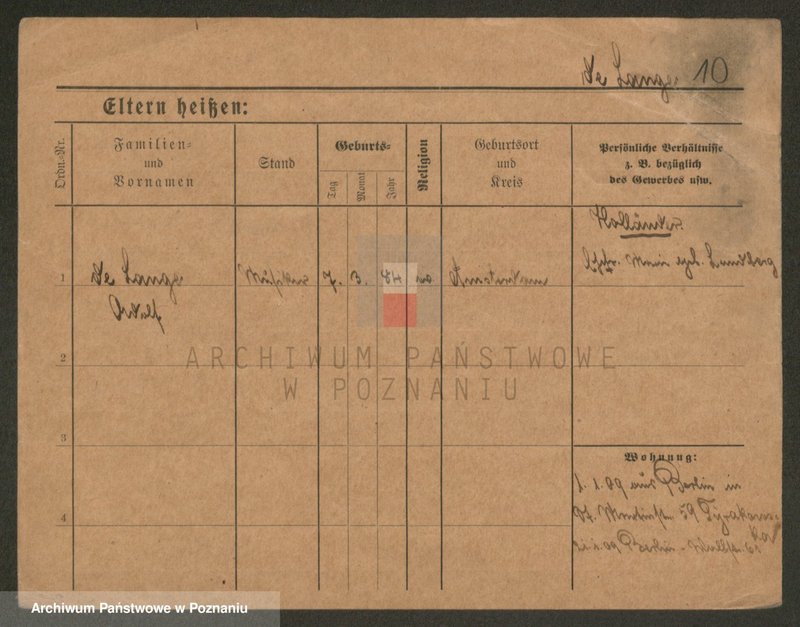 de Lange. 10
Eltern heißen:
Ordn.-Nr.
Familien- und Vornamen
Stand
Geburts-
Tag
Monat
Jahr
Religion
Geburtsort und Kreis
Persönliche Verhältnisse
z. B. bezüglich
des Gewerbes usw.
Holländer.
1 de Lange Musiker 7. 3. 84 Amsterdam
Adolf
2
3
4
Wohnung:
1. 1. 09 aus Berlin in
59
09 Berlin
ARCHIWUM PAŃSTWOWE
W POZNANIU
Archiwum Państwowe w Poznaniu